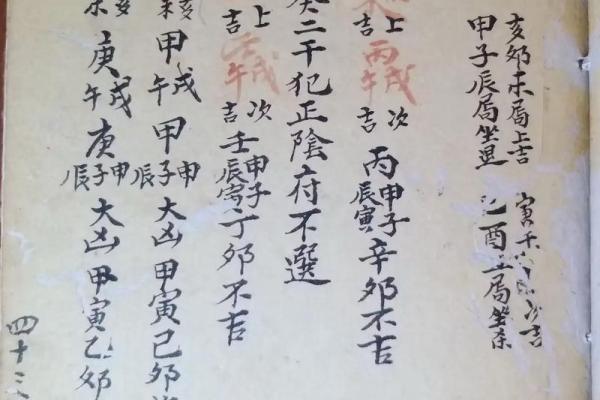 亥卯未局上吉 寅午戌局次吉
甲子辰局坐煞 巳酉丑局坐未
上吉 丙午戌 次吉 丙辰寅甲子申 辛卯不吉
癸二干犯正陰府不選
上吉 壬午戌 次吉 壬辰寅甲子 丁卯不吉
亥未 甲午戌 甲辰子申 大凶 甲寅己卯
亥未 庚午戌 庚辰子申 大凶 甲寅乙卯
四十三